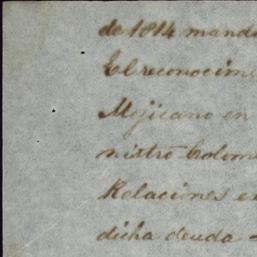 de 1814 mand
El reconocim
Mejicano en
nistro Colom
Relaciones e
dicha deuda -